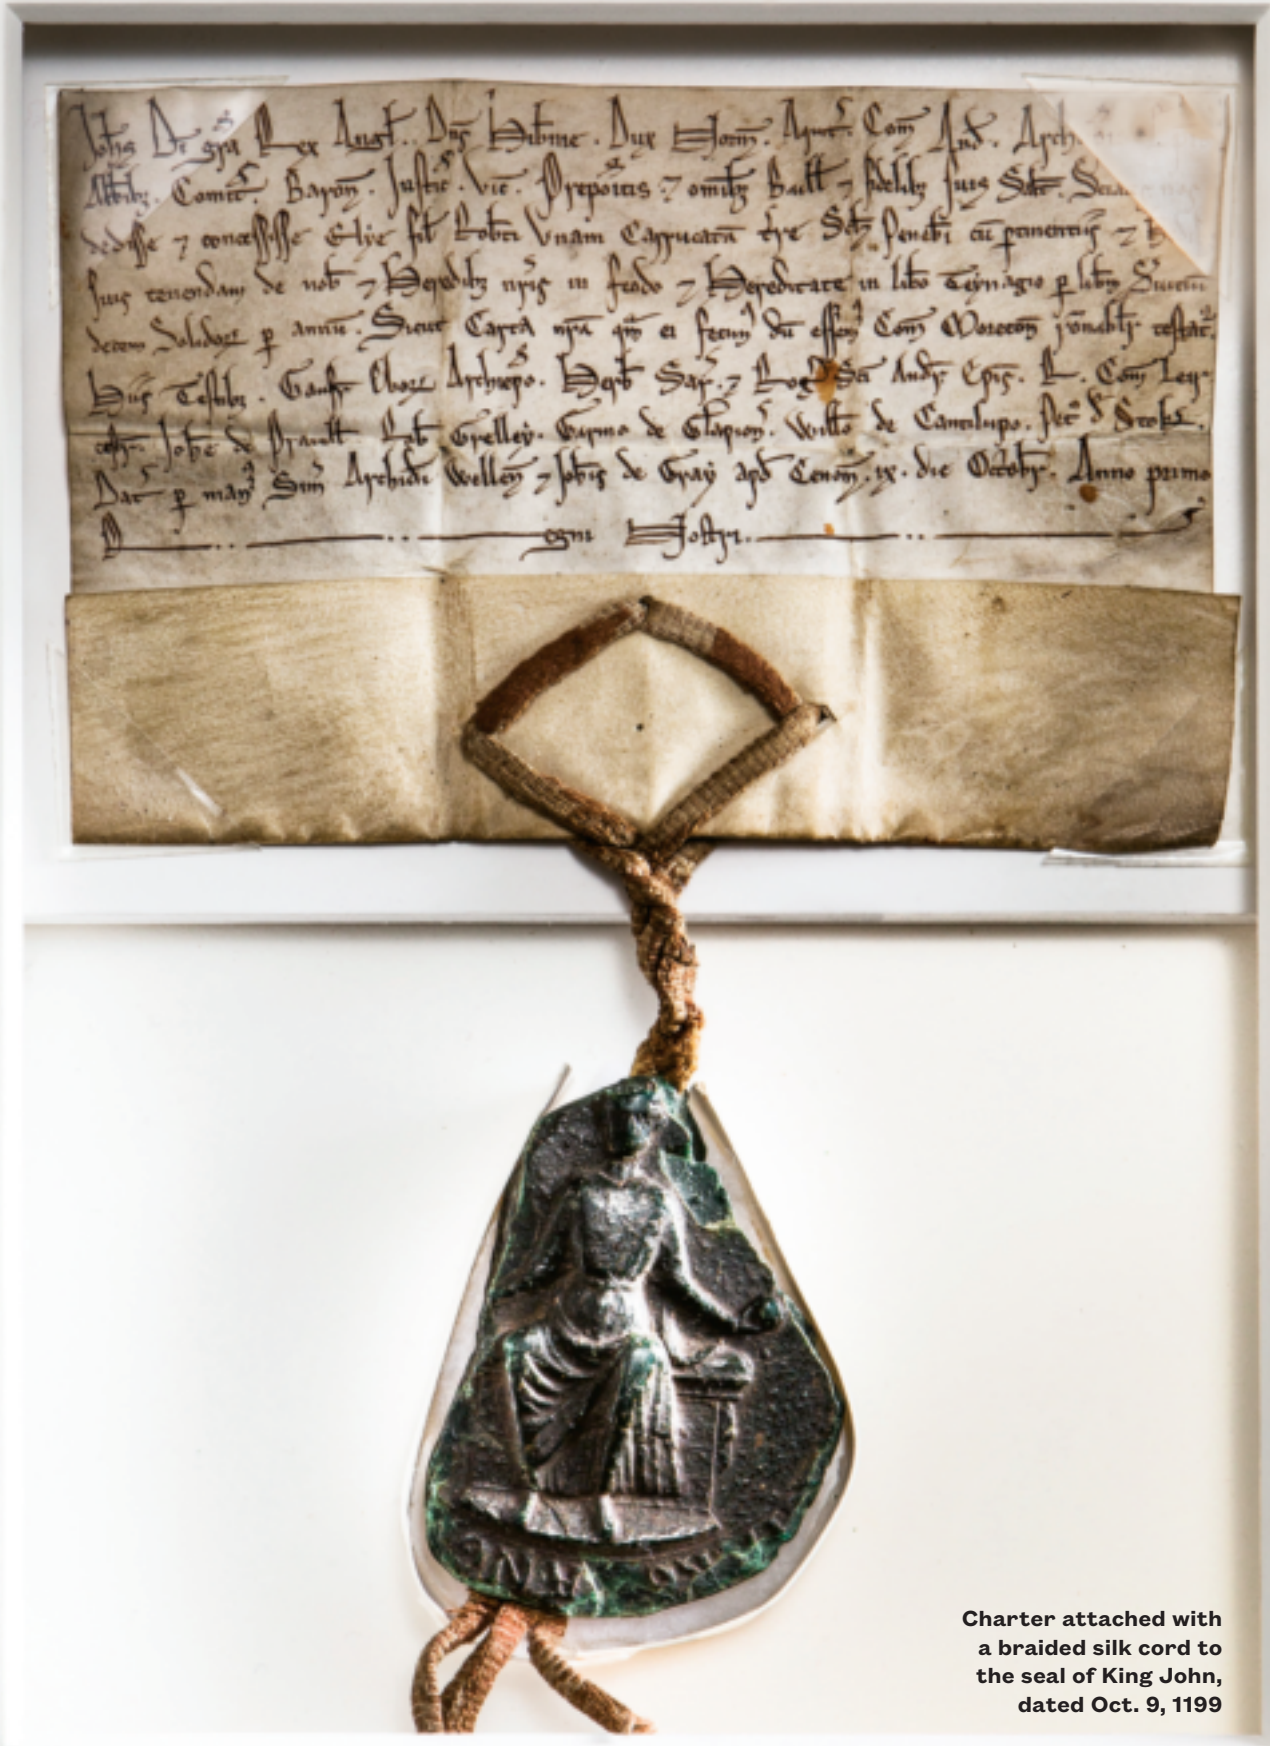 Joh̄s Dī gr̄a Rex Angl̄. Dn̄s Hib̄nie. Dux Norm̄. Aquit̄. Com̄ And̄. Arch
Abb̄ibȝ. Comit̄. Baron̄. Justic̄. vic̄. Prepoītis. ⁊ om̄ibȝ Baill̄ ⁊ fidelibȝ suis Sal̄t.
dedisse ⁊ concessisse Elye fil̄ Rob̄ti unam Carrucatā t̄re cū p̄tinentiis ⁊
suis tenendam de nob̄ ⁊ Heredibȝ nr̄is in feodo ⁊ Hereditate in lib̄o Teynagio p̄ lib̄m
decem Solidoꝝ p̄ annū. Sicut Carta nr̄a qm̄ ei fecim⁹ dū essem⁹ Com̄ Moreton̄ testat̄.
Hiis Testibȝ. Gaufr̄ Eboꝝ Archiep̄o. Herb̄ Sar̄. ⁊ Roḡ Sc̄i Andr̄ Ep̄is. R. Com̄ Leir
cestr̄. Joh̄e de Pratell̄. Rob̄ Grelley. Garino de Glapion̄. Will̄o de Cantilupo. Pet̄ d̄ Stok̄.
Dat̄ p̄ man⁹ Sim̄ Archid̄i Wellen̄ ⁊ Joh̄is de Gray apd̄ Cenom̄. ix. die Octobr̄. Anno primo
R egni Nostri.
Charter attached with
a braided silk cord to
the seal of King John,
dated Oct. 9, 1199